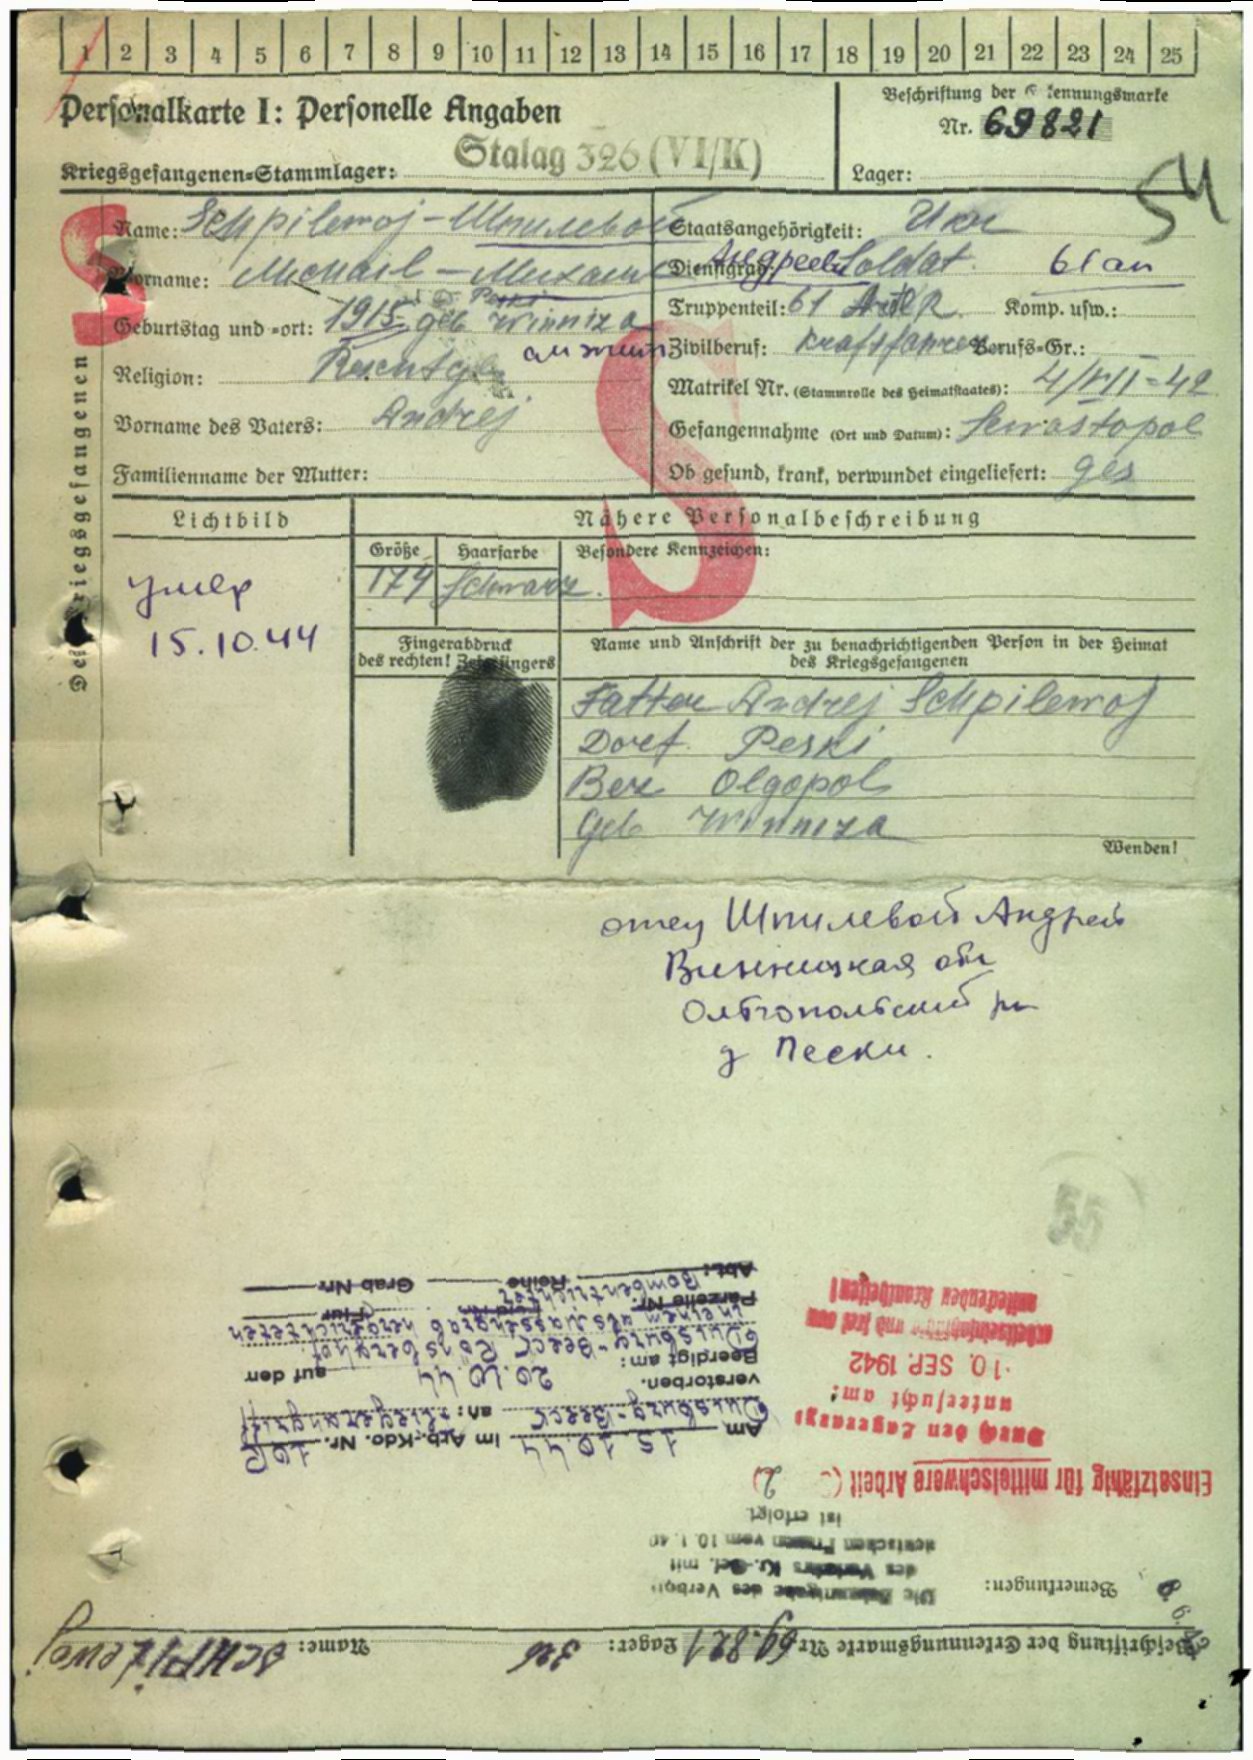 1 2 3 4 5 6 7 8 9 10 11 12 13 14 15 16 17 18 19 20 21 22 23 24 25
Personalkarte I: Personelle Angaben
Beschriftung der Erkennungsmarke
Nr. 69821
Kriegsgefangenen-Stammlager: Stalag 326 (VI/K)
Lager:
Des Kriegsgefangenen
Name: Schpilewoj - Шпилевой
Vorname: Michail - Михаил Андреев
Peski
Geburtstag und -ort: 1915 geb Winniza
Religion:
Vorname des Vaters: Andrej
Familienname der Mutter:
Staatsangehörigkeit: Ukr
Dienstgrad: Soldat 61 ап
Truppenteil: 61 Komp. usw.:
Zivilberuf: Kraftfahrer Berufs-Gr.:
Matrikel Nr. (Stammrolle des Heimatstaates): 4/VII-42
Gefangennahme (Ort und Datum): Sewastopol
Ob gesund, krank, verwundet eingeliefert: ges
S
S
Lichtbild
Nähere Personalbeschreibung
Größe Haarfarbe Besondere Kennzeichen:
174 Schwarz.
умер
15.10.44
Fingerabdruck
des rechten! Zeigefingers
Name und Anschrift der zu benachrichtigenden Person in der Heimat
des Kriegsgefangenen
Fatter Andrej Schpilewoj
Dorf Peski
Bez Olgopol
Geb Winniza
Wenden!
отец Шпилевой Андрей
Винницкая обл
Ольгопольский рн
д Пески.
55
Beschriftung der Erkennungsmarke Nr. 69.821 Lager: 326 Name: SCHPILEWOJ
Bemerkungen:
Die Bekanntgabe des Verbots
des Verkehrs Kr.-Gef. mit
deutschen Frauen vom 10.1.40
ist erfolgt.
Einsatzfähig für mittelschwere Arbeit ( 2)
Durch den Lagerarzt
untersucht am:
10. SEP. 1942
arbeitseinsatzfähig und frei von
ansteckenden Krankheiten!
Am 15 10.44 im Arb.-Kdo. Nr.
Duisburg-Beeck an: Fliegerangriff
verstorben.
Beerdigt am: 20.10.44 auf den
Duisburg-Beeck
in einem als Massengrab hergerichteten
Parzelle Nr. Flur
Bombentrichter
Abt.: Reihe Grab Nr.